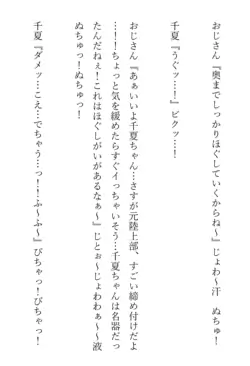 おじさん『奥までしっかりほぐしていくからね~』じょわ~汗　ぬちゅ！
千夏『うぐッ…！』ピクッ…！
おじさん『あぁいいよ千夏ちゃん…さすが元陸上部、すごい締め付けだよ
…！！ちょっと気を緩めたらすぐイっちゃいそう…千夏ちゃんは名器だっ
たんだねぇ！これはほぐしがいがあるなぁ~』じとぉ~じょわわぁ~~液
ぬちゅっ！ぬちゅっ！
千夏『ダメッ…こえ…でちゃうっ…っ！！ふ~ふ~』びちゃっ！びちゃっ！